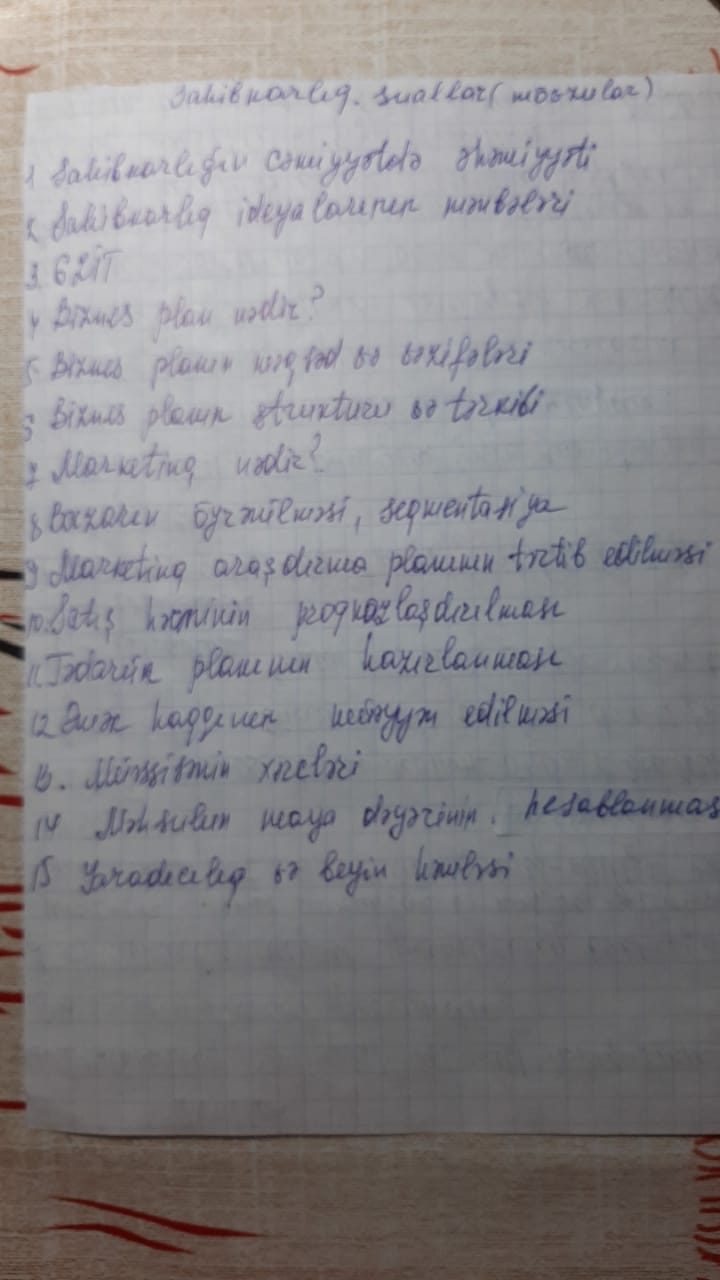 Sahibkarlıq. suallar (mövzular)
1 Sahibkarlığın cəmiyyətdə əhəmiyyəti
2 Sahibkarlıq ideyalarının mənbələri
3. GZİT
4 Biznes plan nədir?
5 Biznes planın məqsəd və vəzifələri
6 Biznes planın strukturu və tərkibi
7 Marketinq nədir?
8 Bazarın öyrənilməsi, seqmentasiya
9 Marketinq araşdırma planının tərtib edilməsi
10. Satış həcminin proqnozlaşdırılması
11. Tədarük planının hazırlanması
12 Əmək haqqının müəyyən edilməsi
13. Müəssisənin xərcləri
14 Məhsulun maya dəyərinin. hesablanması
15 Yaradıcılıq və beyin həmləsi